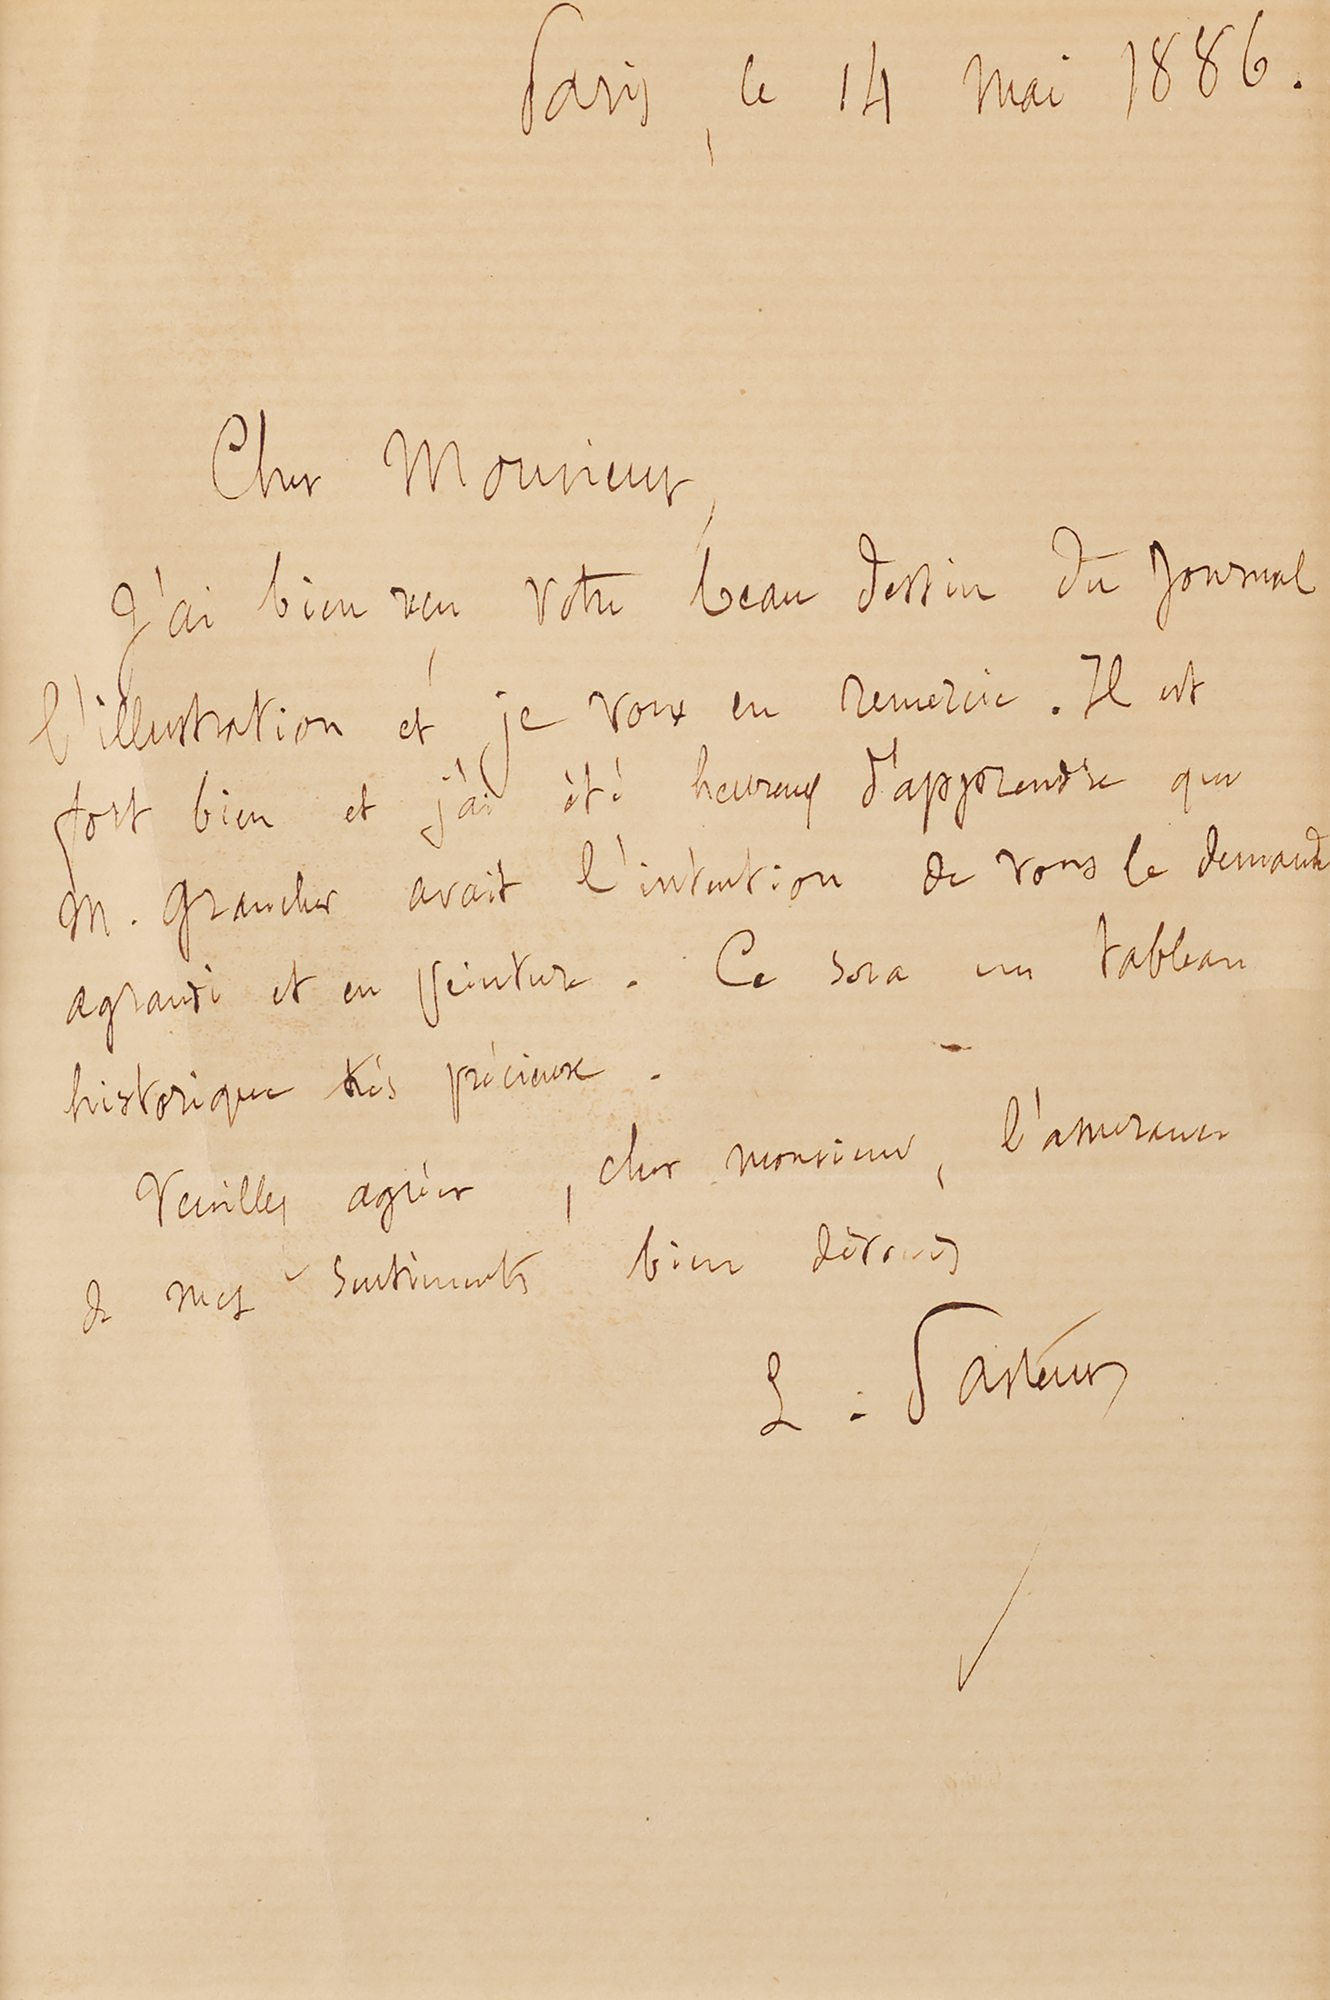 Paris, le 14 mai 1886.
Cher Monsieur,
J'ai bien reçu votre beau dessin du Journal
l'illustration et je vous en remercie. Il est
fort bien et j'ai été heureux d'apprendre que
M. Grancher avait l'intention de vous le demander
agrandi et en peinture. Ce sera un tableau
historique très précieux.
Veuillez agréer, cher monsieur, l'assurance
de mes sentiments bien dévoués
L. Pasteur